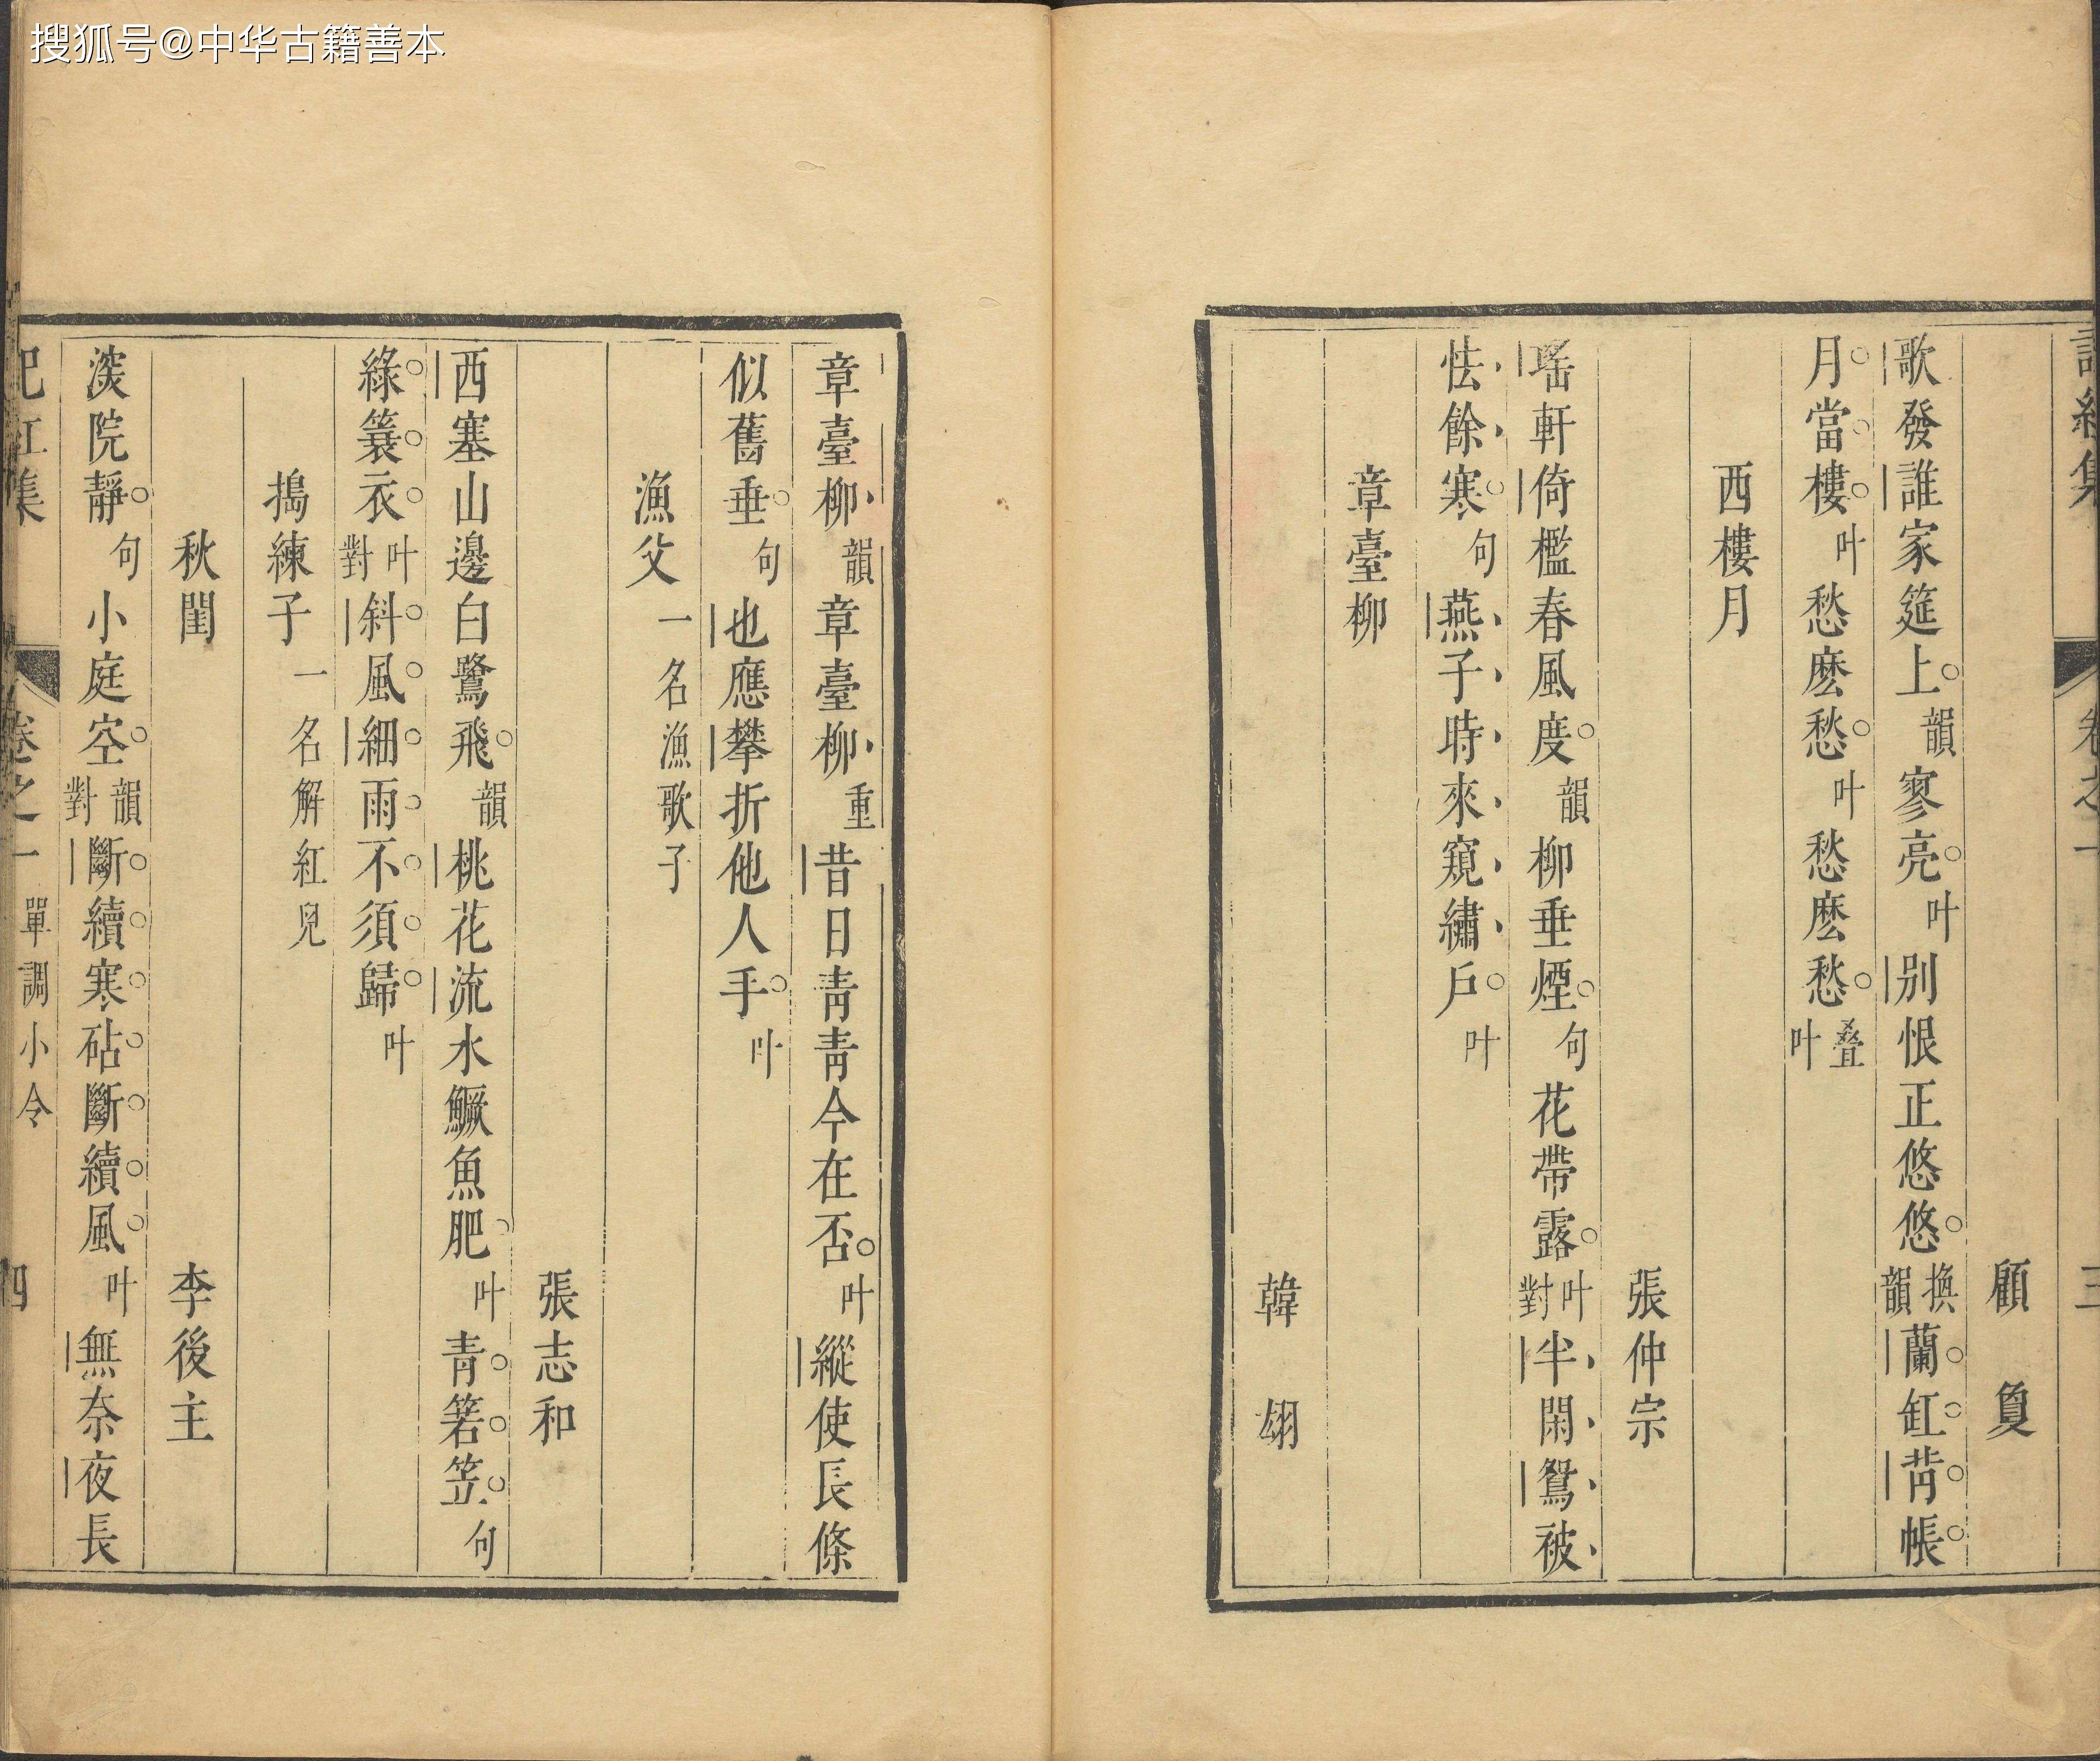 搜狐号@中华古籍善本
顧敻
歌發誰家筵上韻寥亮叶別恨正悠悠換韻蘭缸背帳
月當樓叶愁麽愁叶愁麽愁叠叶
西樓月
張仲宗
瑤軒倚檻春風度韻柳垂煙句花帶露叶對半閑鴛被
怯餘寒句燕子時來窺繡戶叶
章臺柳
韓翃
章臺柳韻章臺柳重昔日青青今在否叶縱使長條
似舊垂句也應攀折他人手叶
漁父一名漁歌子
張志和
西塞山邊白鷺飛韻桃花流水鱖魚肥叶青箬笠句
綠簑衣叶對斜風細雨不須歸叶
搗練子一名解紅兒
秋閨 李後主
深院靜句小庭空韻對斷續寒砧斷續風叶無奈夜長
記紅集 卷之一 單調小令 四